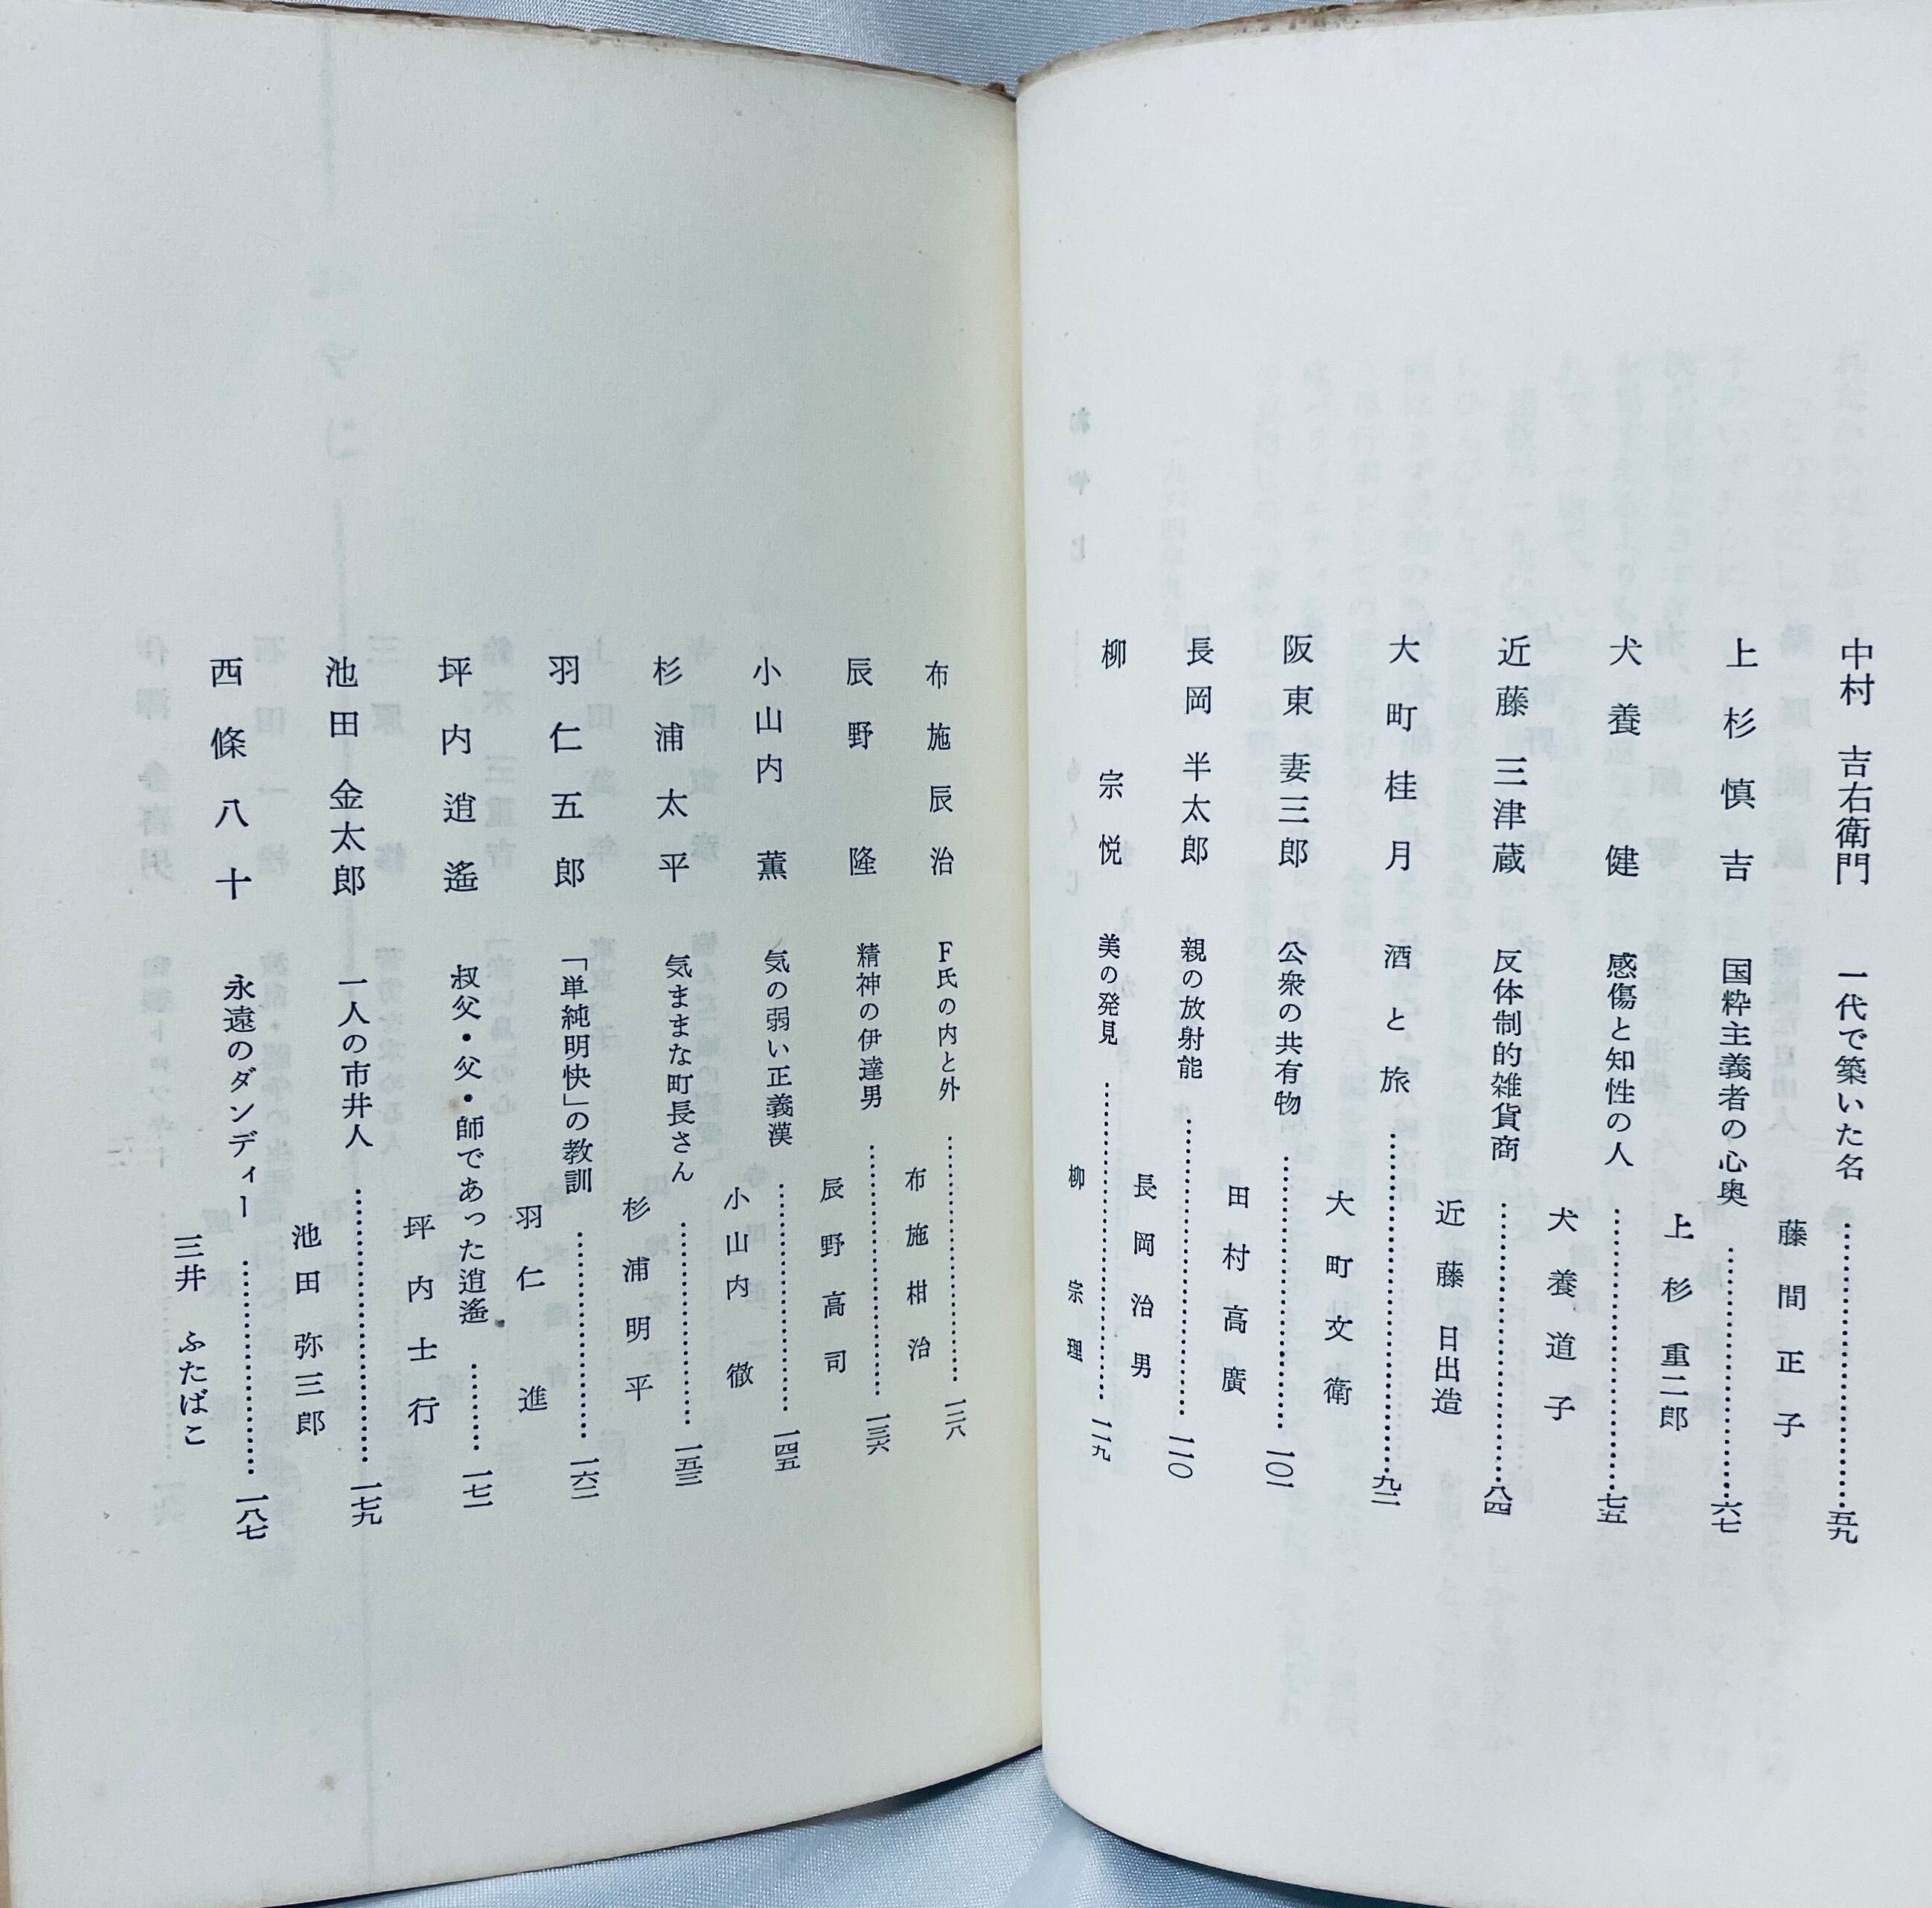 中村 吉右衛門 一代で築いた名……………藤間正子 五九
上杉慎吉 国粋主義者の心奥……………上杉重二郎 六七
犬養健 感傷と知性の人……………犬養道子 七五
近藤三津蔵 反体制的雑貨商……………近藤日出造 八四
大町桂月 酒と旅……………大町文衛 九二
阪東妻三郎 公衆の共有物……………田村高廣 一〇一
長岡半太郎 親の放射能……………長岡治男 一一〇
柳宗悦 美の発見……………柳宗理 一一九
布施辰治 F氏の内と外……………布施柑治 一二八
辰野隆 精神の伊達男……………辰野高司 一三六
小山内薫 気の弱い正義漢……………小山内徹 一四五
杉浦太平 気ままな町長さん……………杉浦明平 一五三
羽仁五郎 「単純明快」の教訓……………羽仁進 一六二
坪内逍遙 叔父・父・師であった逍遙……………坪内士行 一七一
池田金太郎 一人の市井人……………池田弥三郎 一七九
西條八十 永遠のダンディー……………三井ふたばこ 一八七